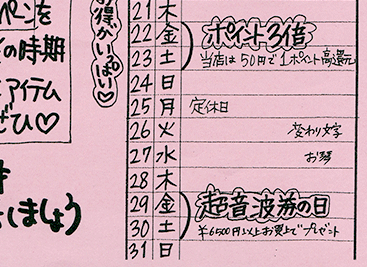 ペンを
の時期
アイテム
ぜひ♡
しましょう
お得がいっぱい♡
21 木
22 金 ポイント3倍
23 土 当店は50円で1ポイント高還元
24 日
25 月 定休日
26 火 変わり文字
27 水 お琴
28 木
29 金 超音波券の日
30 土 ¥6500以上お買上でプレゼント
31 日